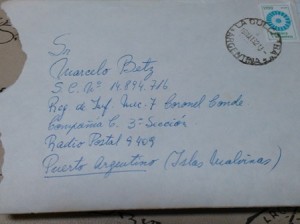 Sr
Marcelo Betz
S.C. Nº 14.894.716
Reg de Inf. Mec. 7 Coronel Conde
Compañia C. 3ª Sección
Radio Postal 9409
Puerto Argentino (Islas Malvinas)